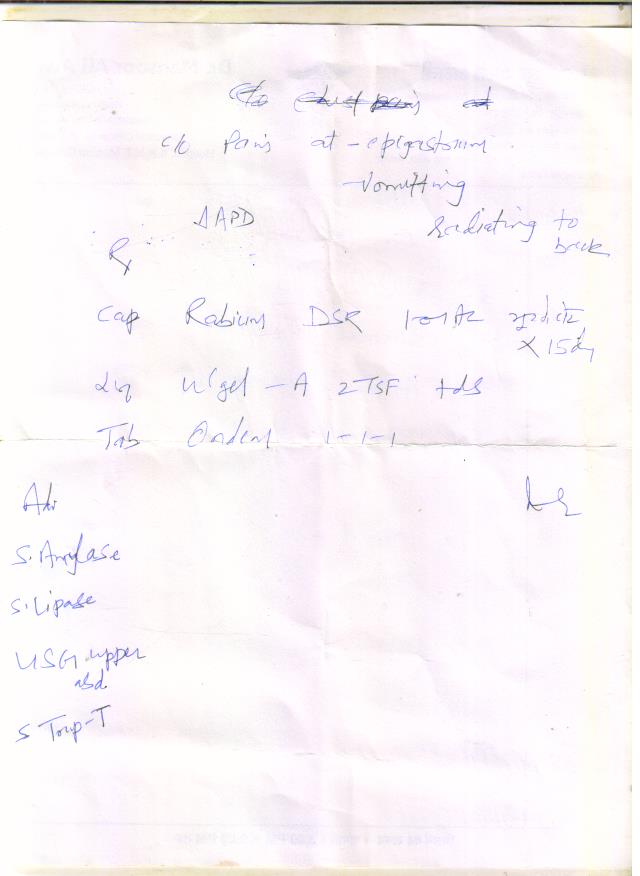 c/o pain at - epigastrium
- Vomitting
radiating to
back
Δ APD
Rx
Cap Rabium DSR 1-0-1 AC
x 15 dy
Liq U'gel - A 2 TSF tds
Tab Ondem 1-1-1
Adv
S. Amylase
S. Lipase
USG upper
abd.
S Trop-T